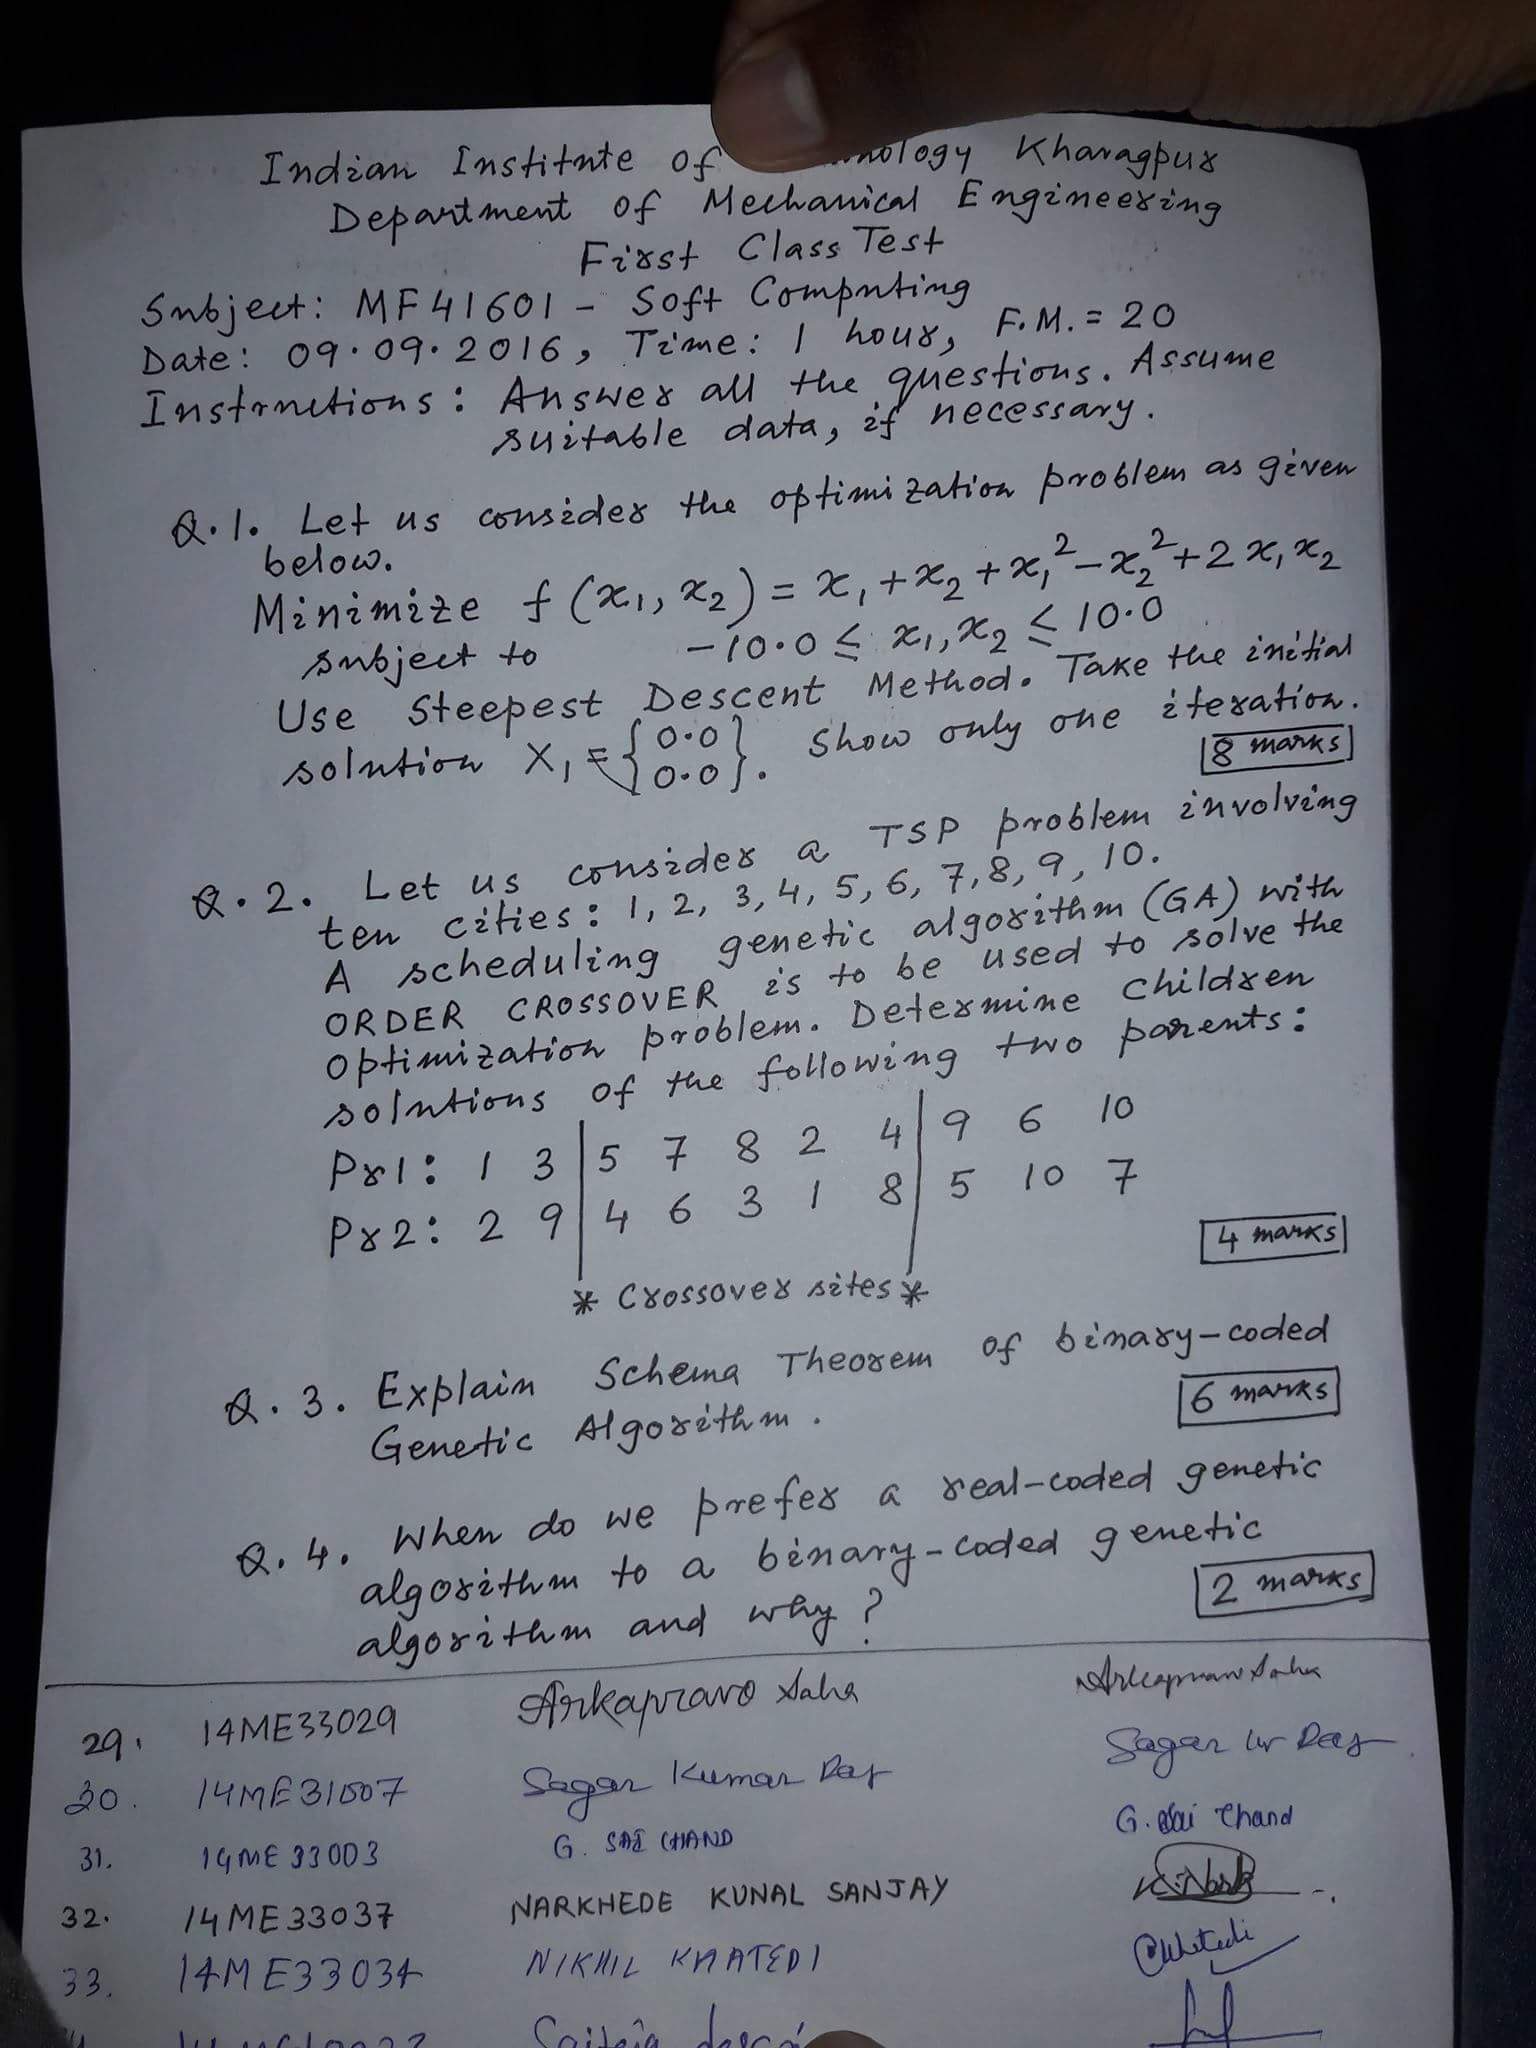 Indian Institute of nology Kharagpur
Department of Mechanical Engineering
First Class Test
Subject: MF41601 - Soft Computing
Date: 09.09.2016, Time: 1 hour, F.M. = 20
Instructions: Answer all the questions. Assume
suitable data, if necessary.
Q.1. Let us consider the optimization problem as given
below.
Minimize f(x₁, x₂) = x₁ + x₂ + x₁² - x₂² + 2x₁x₂
subject to -10.0 ≤ x₁, x₂ ≤ 10.0
Use Steepest Descent Method. Take the initial
solution X₁ = {0.0 0.0}. Show only one iteration.
8 marks
Q.2. Let us consider a TSP problem involving
ten cities: 1, 2, 3, 4, 5, 6, 7, 8, 9, 10.
A scheduling genetic algorithm (GA) with
ORDER CROSSOVER is to be used to solve the
optimization problem. Determine children
solutions of the following two parents:
Pr1: 1 3 | 5 7 8 2 4 | 9 6 10
Pr2: 2 9 | 4 6 3 1 8 | 5 10 7
4 marks
* Crossover sites *
Q.3. Explain Schema Theorem of binary-coded
Genetic Algorithm.
6 marks
Q.4. When do we prefer a real-coded genetic
algorithm to a binary-coded genetic
algorithm and why?
2 marks
29. 14ME33029 Arkapravo Saha Arkapravo Saha
30. 14ME31007 Sagar Kumar Das Sagar Kr Das
31. 14ME33003 G. SAI CHAND G. Sai Chand
32. 14ME33037 NARKHEDE KUNAL SANJAY K. Nark
33. 14ME33034 NIKHIL KHATEDI